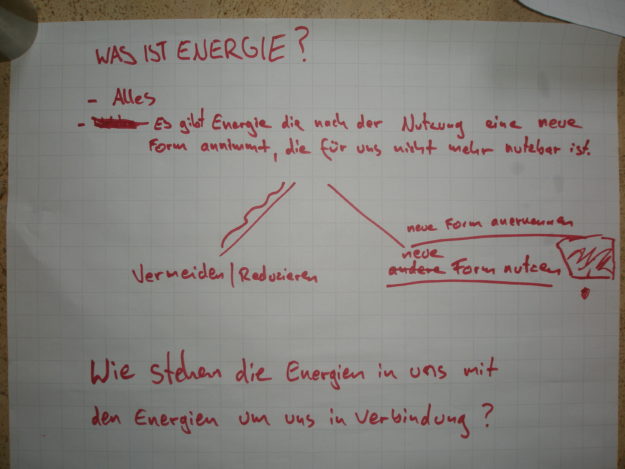 WAS IST ENERGIE?
- Alles
- Es gibt Energie die nach der Nutzung eine neue
Form annimmt, die für uns nicht mehr nutzbar ist.
neue Form anerkennen
neue
andere Form nutzen
Vermeiden/Reduzieren
Wie stehen die Energien in uns mit
den Energien um uns in Verbindung?